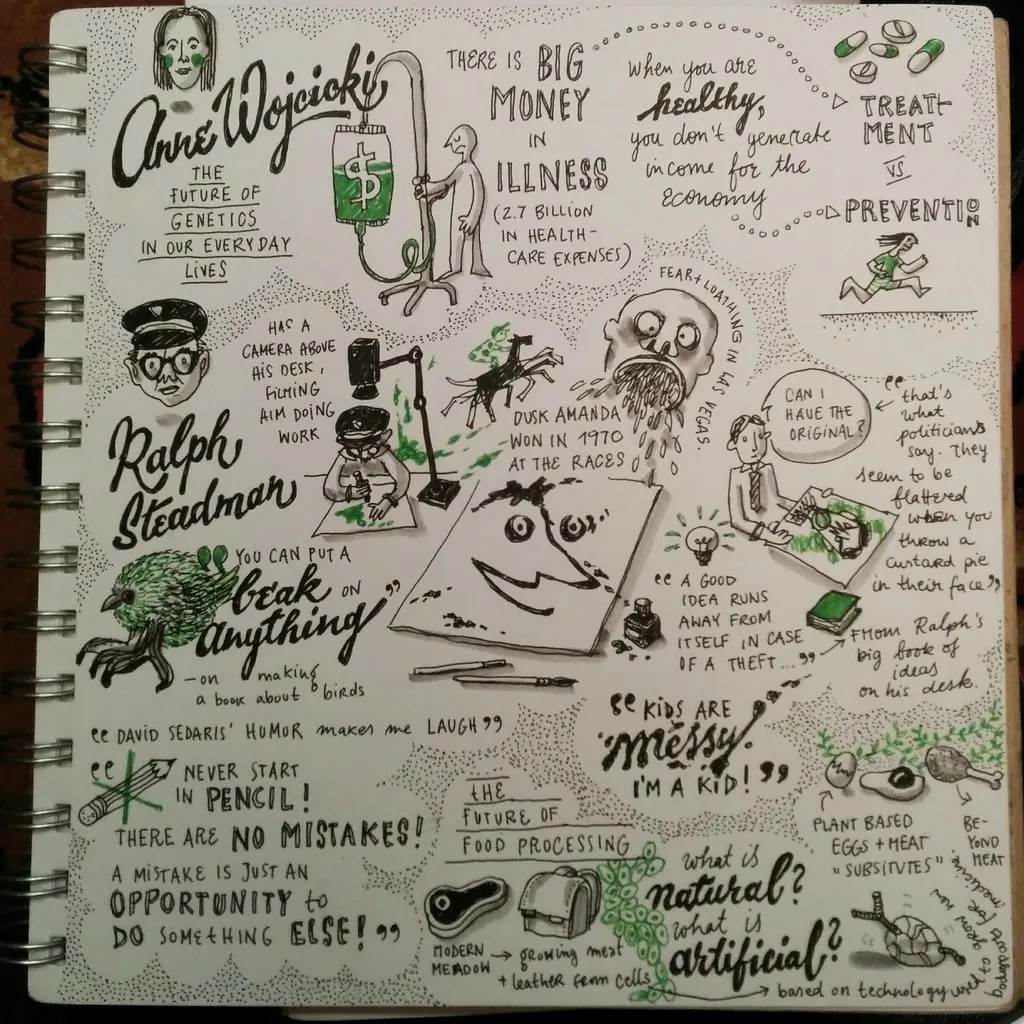 Anne Wojcicki
THE
FUTURE OF
GENETICS
IN OUR EVERYDAY
LIVES
$
THERE IS BIG
MONEY
IN
ILLNESS
(2.7 BILLION
IN HEALTH-
CARE EXPENSES)
When you are
healthy,
you don't generate
income for the
Economy
TREAT-
MENT
VS
PREVENTION
Ralph
Steadman
HAS A
CAMERA ABOVE
HIS DESK,
FILMING
HIM DOING
WORK
DUSK AMANDA
WON IN 1970
AT THE RACES
FEAR + LOATHING IN LAS VEGAS.
CAN I
HAVE THE
ORIGINAL?
"that's
what
politicians
say. They
seem to be
flattered
when you
throw a
custard pie
in their face"
"YOU CAN PUT A
beak ON
anything"
- on making
a book about birds
"A GOOD
IDEA RUNS
AWAY FROM
ITSELF IN CASE
OF A THEFT..."
FROM Ralph's
big book of
ideas
on his desk.
"DAVID SEDARIS' HUMOR makes me LAUGH"
"KIDS ARE
messy.
I'M A KID!"
"NEVER START
IN PENCIL!
THERE ARE NO MISTAKES!
A MISTAKE IS JUST AN
OPPORTUNITY to
DO SOMETHING ELSE!"
THE
FUTURE OF
FOOD PROCESSING
MODERN
MEADOW
growing meat
+ leather from cells
what is
natural?
what is
artificial?
PLANT BASED
EGGS + MEAT
"SUBSITUTES"
BE-
YOND
MEAT
based on technology